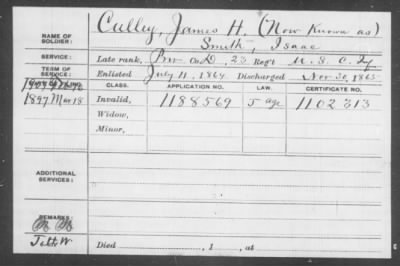 NAME OF SOLDIER: Culley, James H. (Now Known as)
Smith, Isaac
SERVICE: Late rank, Priv Co. D, 23 Reg't U. S. C. Inf
TERM OF SERVICE: Enlisted July 11, 1864 Discharged Nov 30, 1865
CLASS. APPLICATION NO. LAW. CERTIFICATE NO.
1897 Mar 18 Invalid, 1188569 J age 1102313
Widow,
Minor,
ADDITIONAL SERVICES:
REMARKS:
Died , 1 , at